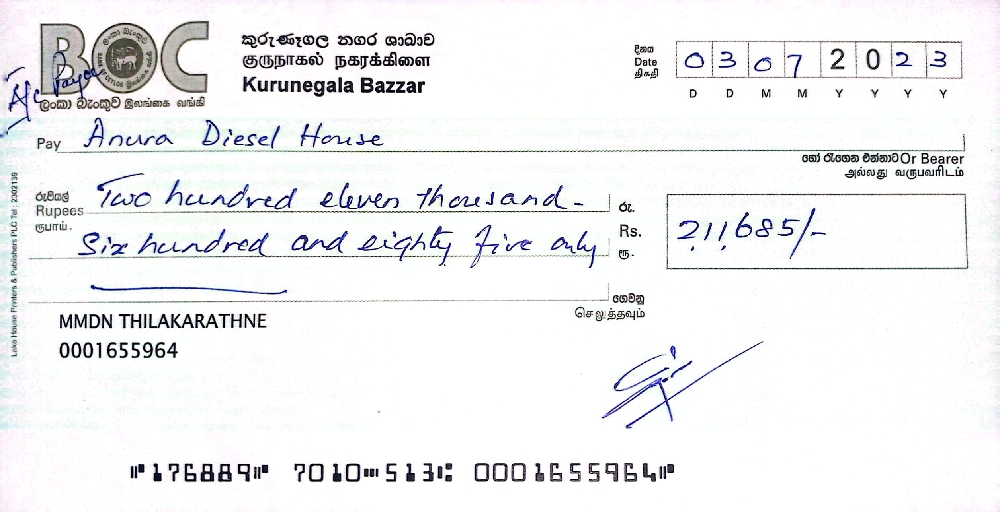 BOC
ලංකා බැංකුව இலங்கை வங்கி
A/c Payee
කුරුණෑගල නගර ශාඛාව
குருநாகல் நகரக்கிளை
Kurunegala Bazzar
දිනය
Date
திகதி
0 3 0 7 2 0 2 3
D D M M Y Y Y Y
Pay Anura Diesel House
හෝ රැගෙන එන්නාට Or Bearer
அல்லது வருபவரிடம்
රුපියල්
Rupees
ரூபாய்.
Two hundred eleven thousand -
Six hundred and eighty five only
රු.
Rs.
ரூ.
211,685/-
ගෙවනු
செலுத்தவும்
MMDN THILAKARATHNE
0001655964
Lake House Printers & Publishers PLC Tel : 2302139
⑈176889⑈ 7010⑉513⑆ 0001655964⑈